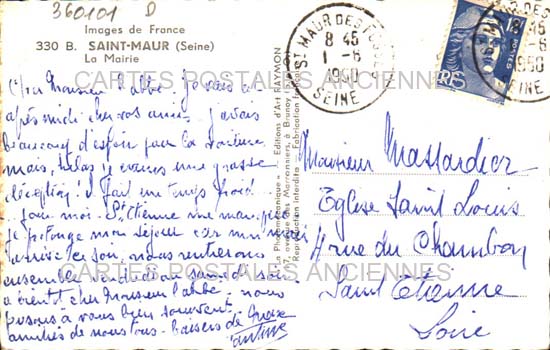 360101 D
Images de France
330 B. SAINT-MAUR (Seine)
La Mairie
Cher Monsieur l'abbé je vais cet
après midi chez vos amis j'avais
beaucoup d'espoir pour la voiture
mais, hélas je une grosse
déception! il fait un temps froid
pour moi. St Etienne me manque
je prolonge mon séjour car mon mari
arrive, nous rentrerons
ensemble vendredi ou samedi soir
à bientôt cher Monsieur l'abbé nous
pensons à vous bien souvent
amitiés de nous tous. Baisers de
"La Photomécanique" - Editions d'Art RAYMON
7, avenue des Marronniers, à Brunoy (S.-&-O.)
Reproduction Interdite - Fabrication française
ST MAUR DES FOSSES
8 45
1 -6
1950
SEINE
ST MAUR DES FOSSES
8 45
-6
1950
SEINE
POSTES
Monsieur Massardier
Eglise Saint Louis
4 rue du Chambon
Saint Etienne
Loire
CARTES POSTALES ANCIENNES
CARTES POSTALES ANCIENNES